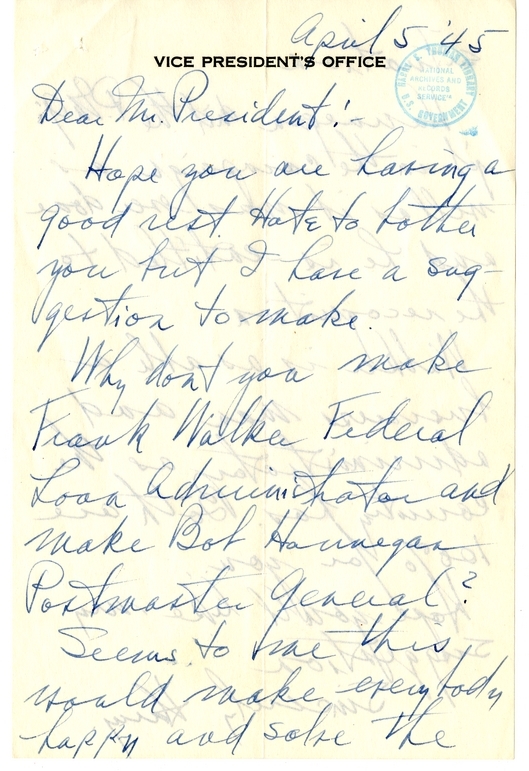 April 5 '45
VICE PRESIDENT'S OFFICE
HARRY S. TRUMAN LIBRARY
NATIONAL
ARCHIVES AND
RECORDS
SERVICE
U.S. GOVERNMENT
Dear Mr. President:-
Hope you are having a
good rest. Hate to bother
you but I have a sug-
gestion to make.
Why don't you make
Frank Walker Federal
Loan Administrator and
make Bob Hannegan
Postmaster General?
Seems to me this
would make everybody
happy and solve the